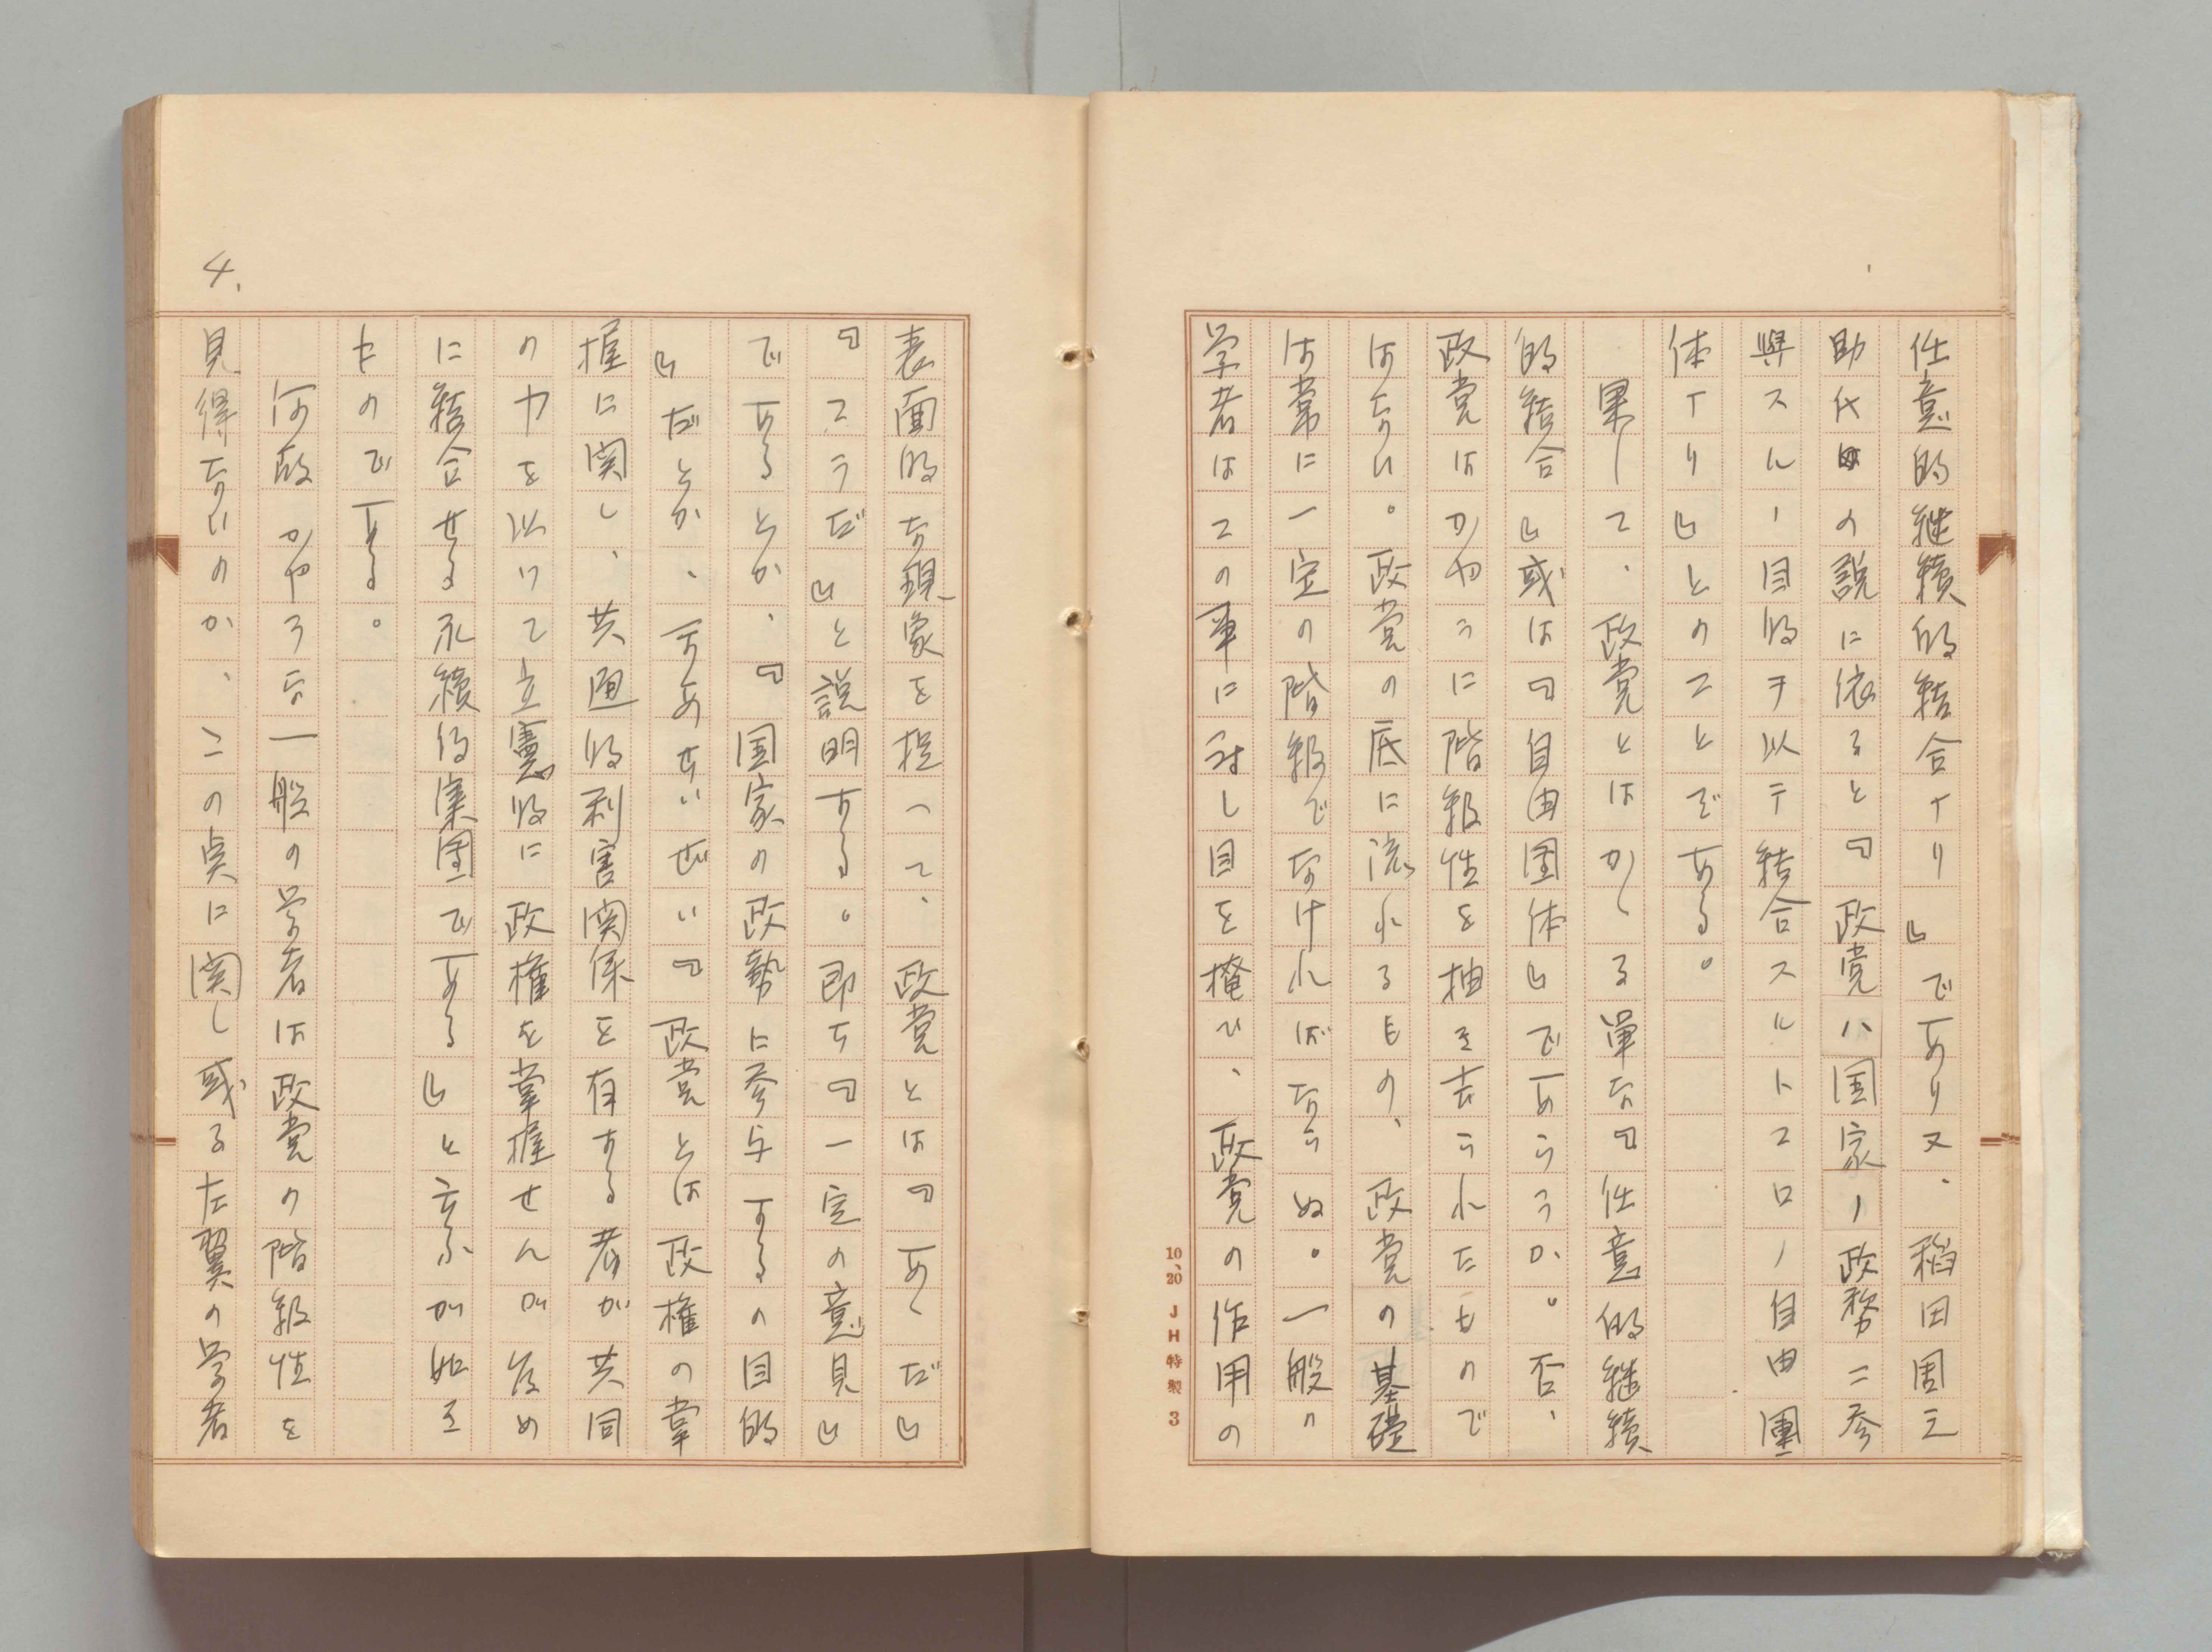 任意的継続的結合ナリ』であり又、稲田周之
助氏の説に依ると『政党ハ国家ノ政務ニ参
與スルノ目的ヲ以テ結合スルトコロノ自由團
体ナリ』とのことである。
果して、政党とはかくる単な『任意的継続
的結合』或は『自由団体』であらうか。否、
政党はかやうに階級性を抽き去られたもので
はない。政党の底に流れるもの、政党の基礎
は常に一定の階級でなければならぬ。一般の
学者はこの事に対し目を掩ひ、政党の作用の
10、20 JH特製 3
4.
表面的な現象を捉へて、政党とは『あゝだ』
『こうだ』と説明する。即ち『一定の意見』
であるとか、『国家の政勢に参与するの目的
』だとか、すあせいぜい『政党とは政権の掌
握に関し、共通的利害関係を有する者が共同
の力を以けて立憲的に政権を掌握せんが為め
に結合せる永續的集團である』と云ふが如き
ものである。
何故かやうな一般の学者は政党の階級性を
見得ないのか、この点に関し或る左翼の学者